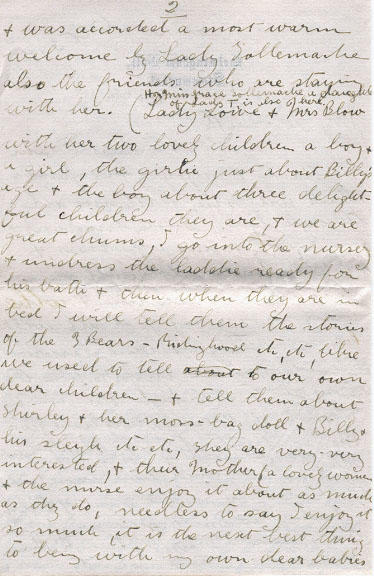 2
+ was accorded a most warm
welcome by Lady Tollemache
also the friends who are staying
with her. (Lady Lowe + Mrs Blow
Hon Miss Grace Tollemache a daughter
of Lady T. is also here.
with her two lovely children a boy +
a girl, the girlie just about Billy's
age + the boy about three delight-
ful children they are, + we are
great chums, I go into the nursery
+ undress the laddie ready for
his bath + then when they are in
bed I will tell them the stories
of the 3 Bears - Ridinghood etc, etc, like
we used to tell about to our own
dear children - + tell them about
Shirley + her moss-bag doll + Billy +
his sleigh etc etc, they are very-very
interested, + their Mother (a lovely woman
+ the nurse enjoy it about as much
as they do, needless to say I enjoy it
so much, it is the next best thing
to being with my own dear babies